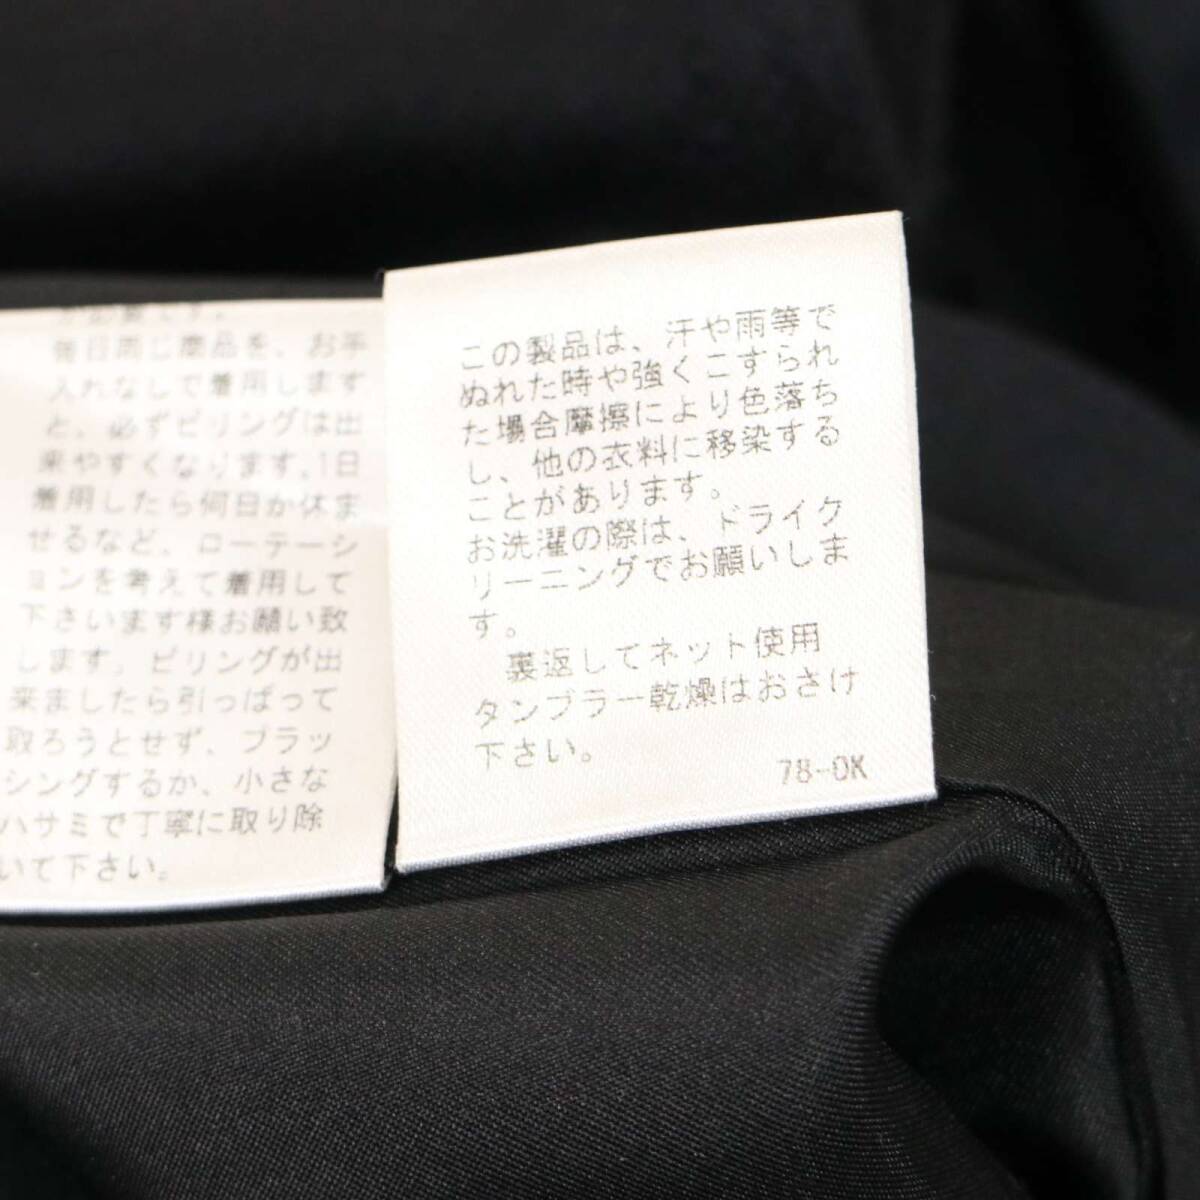 毎日同じ商品を、お手
入れなしで着用します
と、必ずピリングは出
来やすくなります。1日
着用したら何日か休ま
せるなど、ローテーシ
ョンを考えて着用して
下さいます様お願い致
します。ピリングが出
来ましたら引っぱって
取ろうとせず、ブラッ
シングするか、小さな
ハサミで丁寧に取り除
いて下さい。
この製品は、汗や雨等で
ぬれた時や強くこすられ
た場合摩擦により色落ち
し、他の衣料に移染する
ことがあります。
お洗濯の際は、ドライク
リーニングでお願いしま
す。
裏返してネット使用
タンブラー乾燥はおさけ
下さい。
78-OK